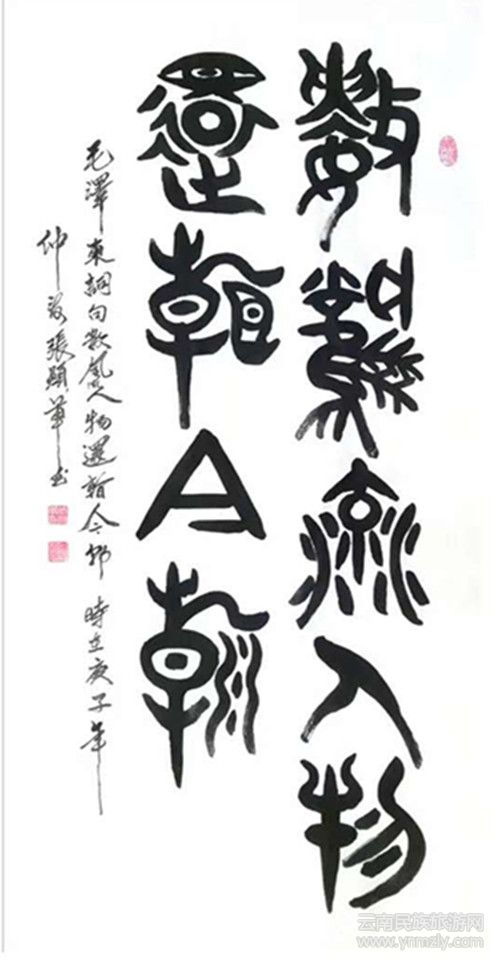 數風流人物
還看今朝
毛澤東詞句數風人物還看今朝 時在庚子年
仲夏張顯華書
云南民族旅游网
www.ynmzly.com